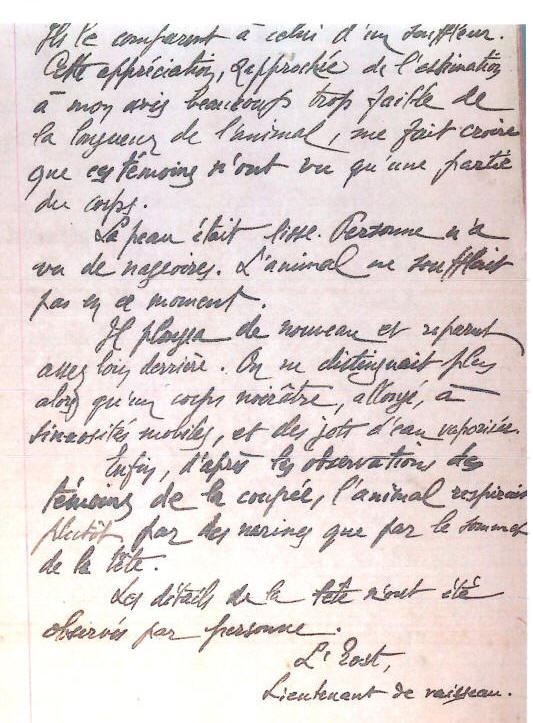 Ils le comparent à celui d'un souffleur.
Cette appréciation, rapprochée de l'estimation
à mon avis beaucoup trop faible de
la longueur de l'animal, me fait croire
que ces témoins n'ont vu qu'une partie
du corps.
La peau était lisse. Personne n'a
vu de nageoires. L'animal ne soufflait
pas en ce moment.
Il plongea de nouveau et reparut
assez loin derrière. On ne distinguait plus
alors qu'un corps noirâtre, allongé, à
sinuosités mobiles, et des jets d'eau vaporisée.
Enfin, d'après les observations des
témoins de la coupée, l'animal respirait
plutôt par des narines que par le sommet
de la tête.
Les détails de la tête n'ont été
observés par personne.
Lieutenant de vaisseau.